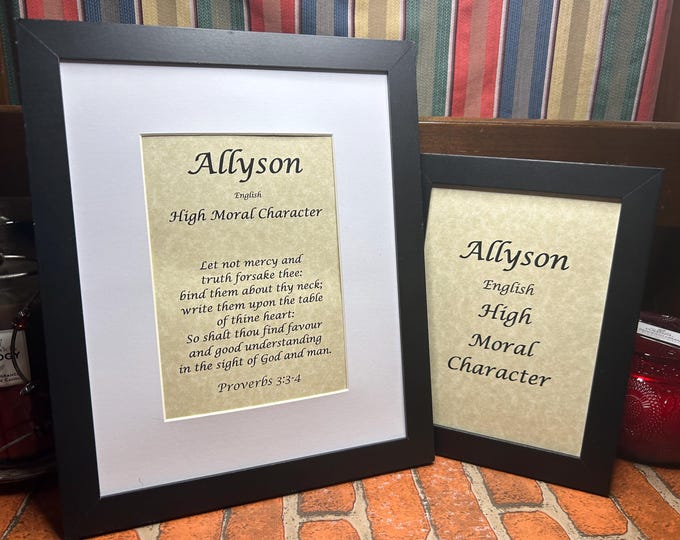 Allyson
English
High Moral Character
Let not mercy and
truth forsake thee:
bind them about thy neck;
write them upon the table
of thine heart:
So shalt thou find favour
and good understanding
in the sight of God and man.
Proverbs 3:3-4
Allyson
English
High
Moral
Character